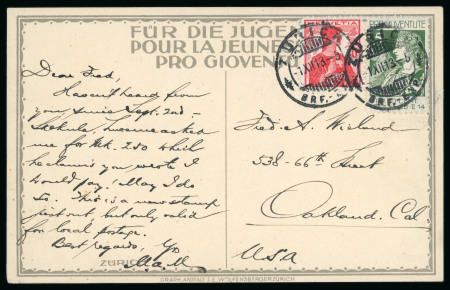 FÜR DIE JUGEN
POUR LA JEUNE
PRO GIOVEN
HELVETIA
PRO JUVENTUTE
ZÜRICH
-1.XII.13.
BRF.
ZÜRICH
-1.XII.13.
BRF.
Dear Fred,
Haven't heard from
you since Sept. 2nd —
me for 2.50 which
he claims you wrote I
would pay. May I do
so. This is a new stamp
just out but only valid
for local postage.
Best regards, Yo
M.a.M
Fred A. Wieland
538-66th Street
Oakland. Cal
USA
ZÜRICH
GRAPH. ANSTALT J.E. WOLFENSBERGER ZÜRICH